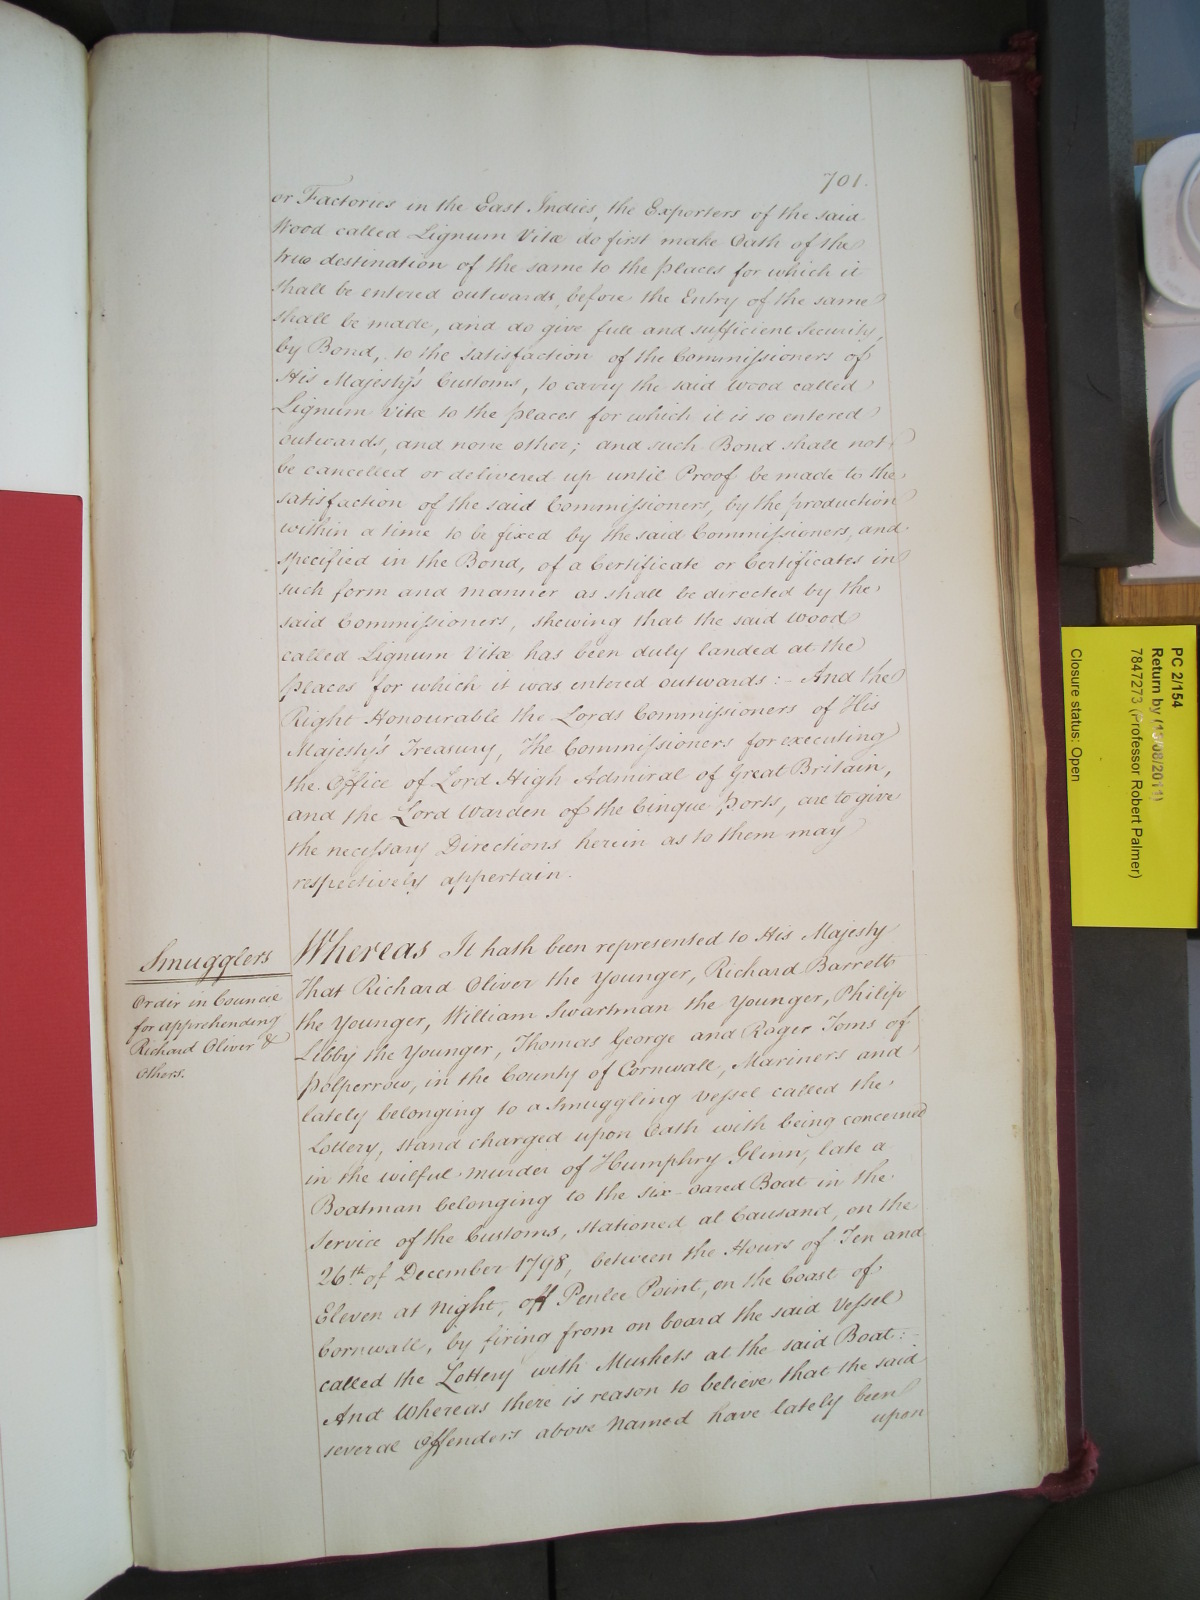 701.
or Factories in the East Indies, the Exporters of the said
Wood called Lignum Vitæ do first make Oath of the
true destination of the same to the places for which it
shall be entered outwards, before the Entry of the same
shall be made, and do give full and sufficient Security,
by Bond, to the satisfaction of the Commissioners of
His Majesty's Customs, to carry the said Wood called
Lignum Vitæ to the places for which it is so entered
outwards, and none other; and such Bond shall not
be cancelled or delivered up until Proof be made to the
satisfaction of the said Commissioners, by the production
within a time to be fixed by the said Commissioners, and
specified in the Bond, of a Certificate or Certificates in
such form and manner as shall be directed by the
said Commissioners, shewing that the said Wood
called Lignum Vitæ has been duly landed at the
places for which it was entered outwards:- And the
Right Honourable the Lords Commissioners of His
Majesty's Treasury, The Commissioners for executing
the Office of Lord High Admiral of Great Britain,
and the Lord Warden of the Cinque Ports, are to give
the necessary Directions herein as to them may
respectively appertain.
Smugglers
Order in Council
for apprehending
Richard Oliver &
Others.
Whereas It hath been represented to His Majesty
That Richard Oliver the Younger, Richard Barrett
the Younger, William Swartman the Younger, Philip
Libby the Younger, Thomas George and Roger Toms of
Polperrow, in the County of Cornwall, Mariners and
lately belonging to a Smuggling Vessel called the
Lottery, stand charged upon Oath with being concerned
in the wilful murder of Humphry Glinn, late a
Boatman belonging to the six-oared Boat in the
Service of the Customs, stationed at Causand, on the
26th of December 1798, between the Hours of Ten and
Eleven at Night, off Penlee Point, on the Coast of
Cornwall, by firing from on board the said Vessel
called the Lottery with Muskets at the said Boat:-
And Whereas there is reason to believe that the said
several Offenders above Named have lately been
upon
PC 2/154
Return by (13/08/2011)
7847273 (Professor Robert Palmer)
Closure status: Open